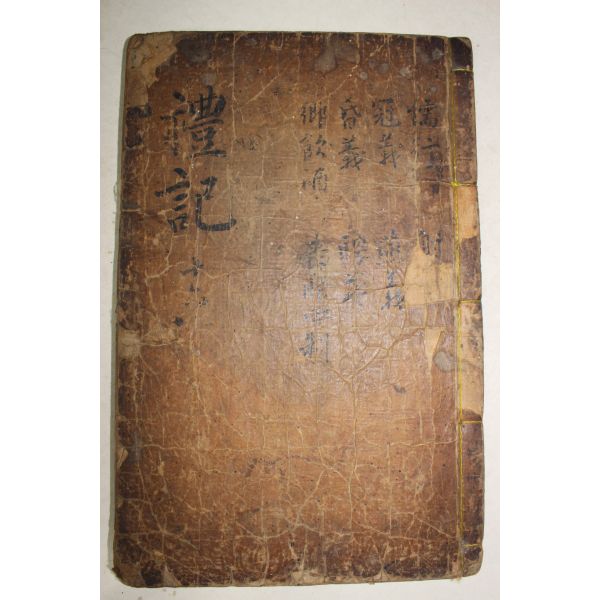 禮記
儒行
冠義 燕義
昏義 聘義
鄉飲酒 喪服四制